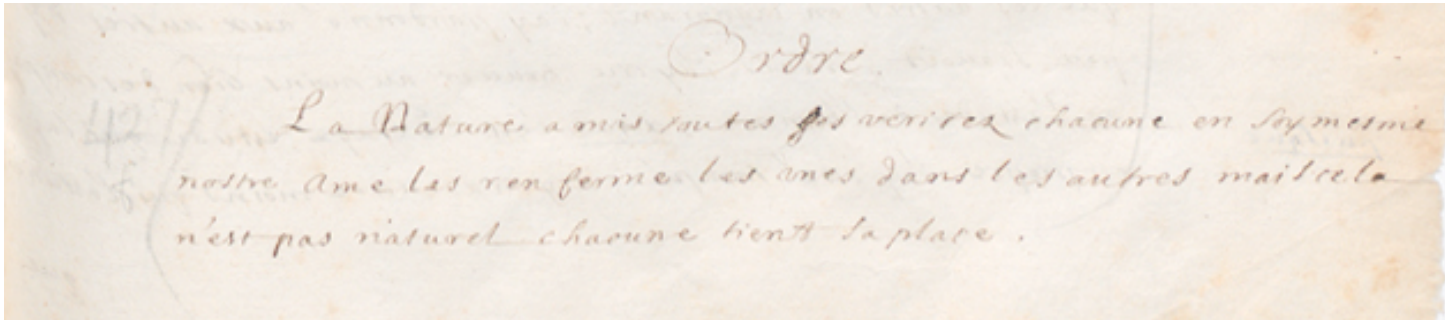 Ordre.
La Nature a mis toutes ses veritez chacune en soy mesme
nostre ame les renferme les unes dans les autres mais cela
n'est pas naturel chacune tient sa place.